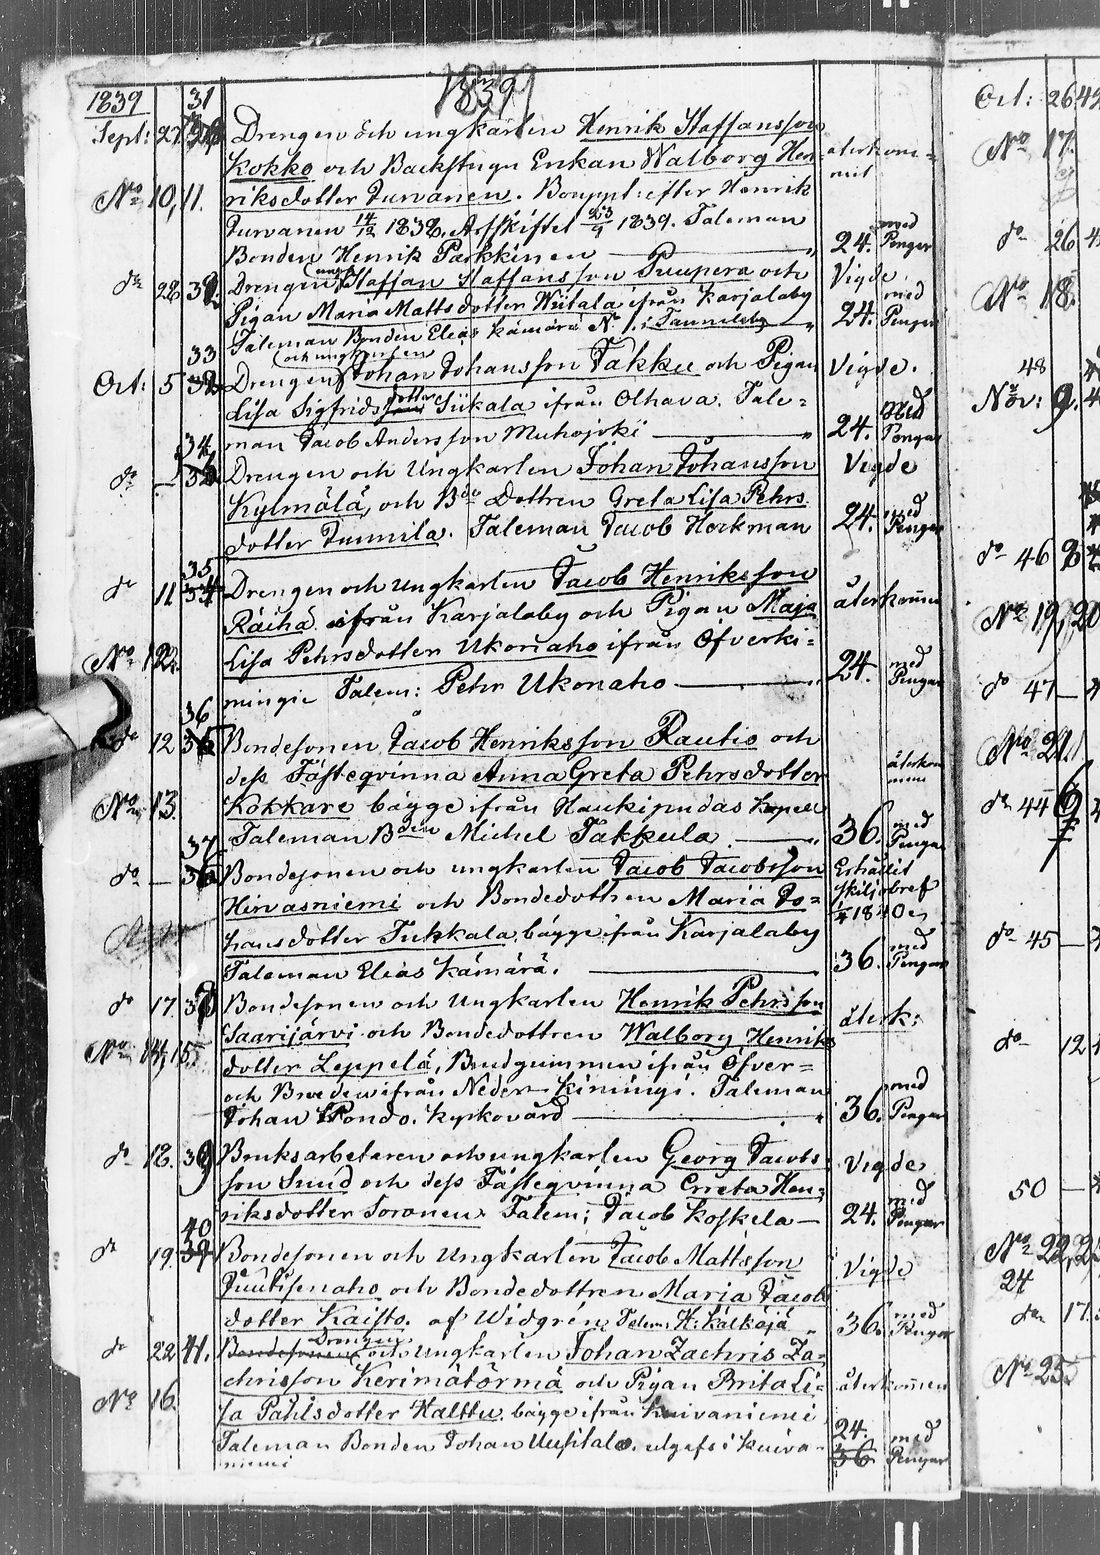 1839
1839
31
Sept: 27. Drengen och ungkarlen Henrik Staffansson
Kokko och Backstugu Enkan Walborg Hen= återkom=
mit
No 10, 11. riksdotter Turvanen. Bouppt: efter Henrik
Turvanen 14/12 1838. Arfskiftet 23/9 1839. Taleman
Bonden Henrik Parkkinen 24. med Pengar
do 28 32. Drengen Staffan Staffansson Puupera och Vigde
Pigan Maria Mattsdotter Wiitala ifrån Karjalaby 24. med Pengar
Taleman Bonden Elias Kämärä No 1. i Tannilaby
33
och ungkarlen
Oct: 5 32 Drengen Johan Johansson Takku och Pigan Vigde.
Lisa Sigfrids dotter Siikala ifrån Olhava. Tale=
man Jacob Andersson Muhojoki 24. Med Pengar
34
do — Drengen och Ungkarlen Johan Johansson Vigde
Kylmälä, och Bde Dottren Greta Lisa Pehrs
dotter Tunnila. Taleman Jacob Hockman 24. med Pengar
35
do 11 34 Drengen och Ungkarlen Jacob Henriksson återkommu
Räihä ifrån Karjalaby och Pigan Maja
No 12. Lisa Pehrsdotter Ukonaho ifrån Öfverki=
mingie Talem: Pehr Ukonaho 24. med Pengar
36
do 12 35 Bondesonen Jacob Henriksson Rautio och
dess Fästeqvinna Anna Greta Pehrsdotter återkommu
No 13. Kokkare bägge ifrån Haukipudas Kapell
Taleman Bden Michel Takkula 36. med Pengar
37
do — 36 Bondesonen och ungkarlen Jacob Jacobsson Erhållit
Hirvasniemi och Bondedottren Maria Jo= skiljobref
1/4 1840
hansdotter Tukkala, bägge ifrån Karjalaby
Taleman Elias Kämärä. 36. med Pengar
do 17. 38 Bondesonen och Ungkarlen Henrik Pehrsson
Saarijärvi och Bondedottren Walborg Henriks återk:
No 14, 15. dotter Leppelä, Brudgummen ifrån Öfver=
och Bruden ifrån Neder Kimingi. Taleman
Johan Pondo. Kyrkovärd 36. med Pengar
do 18. 39 Bruksarbetaren och ungkarlen Georg Jacobs Vigde
son Sund och dess Fästeqvinna Greta Hen=
riksdotter Soronen. Talem; Jacob Koskela — 24. med Pengar
40
do 19. 39 Bondesonen och Ungkarlen Jacob Mattsson Vigde
Juutisenaho och Bondedottren Maria Jacobs
dotter Kaisto. af Widgrén. Talem: H. Kälkäjä 36. med Pengar
Drengen
do 22 41. Bondesonen och Ungkarlen Johan Zachris Za=
chrisson Kerimätörmä och Pigan Brita Li= återkommen
No 16. sa Påhlsdotter Halttu. bägge ifrån Kuivaniemi
24.
Taleman Bonden Johan Uusitalo. utgafs i Kuiva= 36 med Pengar
niemi
Oct: 26 42
No 17.
do 26
No 18.
48
Nov: 9.
do 46
No 19, 20
do 47 —
No 21.
do 44
do 45 —
do 12
50 —
No 22, 23
24
do 17.
No 25